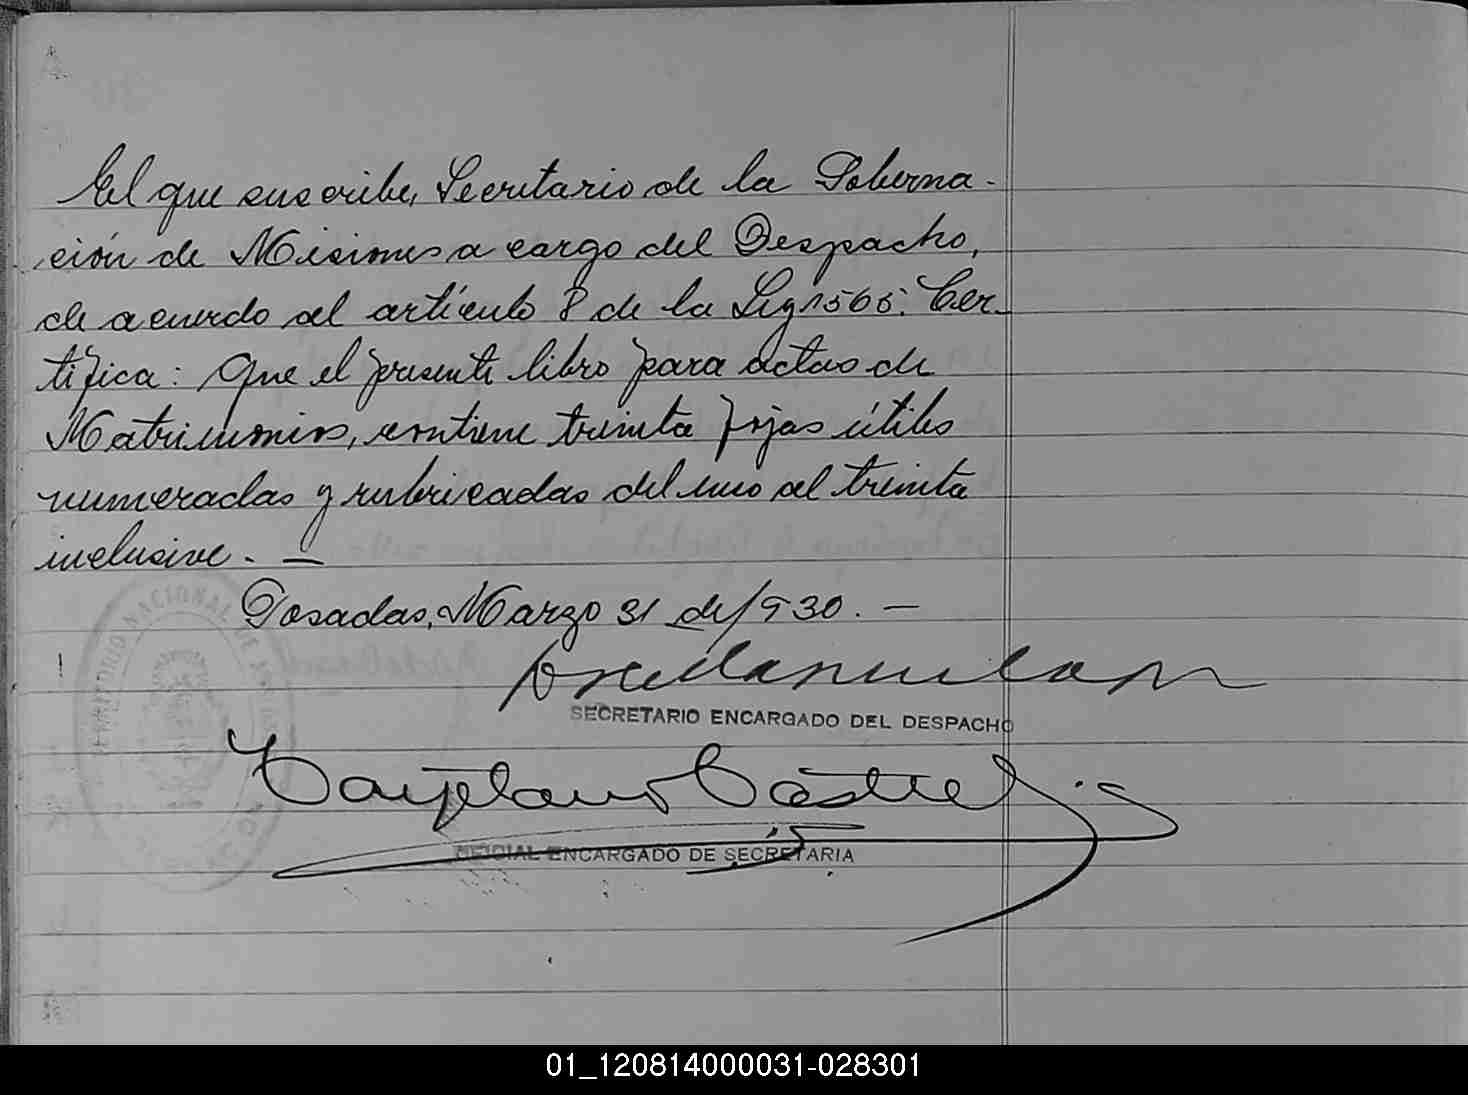 El que suscribe, Secretario de la Goberna-
ción de Misiones a cargo del Despacho,
de acuerdo al artículo 8 de la Ley 1565: Cer-
tifica: Que el presente libro para actas de
Matrimonios, contiene treinta fojas útiles
numeradas y rubricadas del uno al treinta
inclusive. —
Posadas, Marzo 31 de 1930. —
SECRETARIO ENCARGADO DEL DESPACHO
Cayetano Castelli
OFICIAL ENCARGADO DE SECRETARIA
NACIONAL DE
01_120814000031-028301